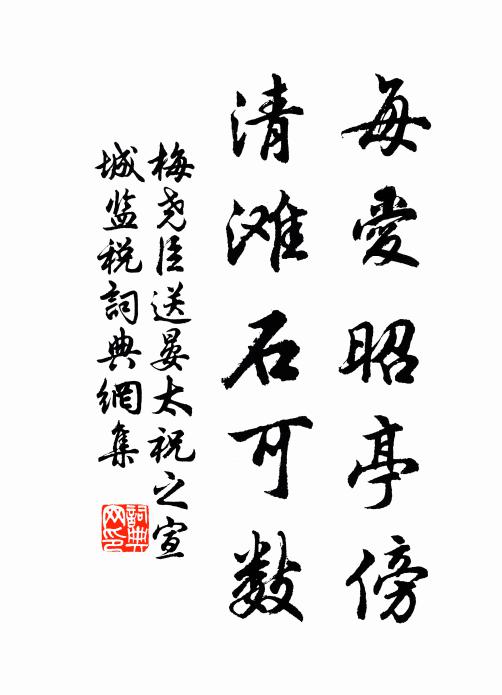 每愛昭亭傍
清滩石可数
梅尧臣送晏太祝之宣
城监税詞典網集
詞典网印